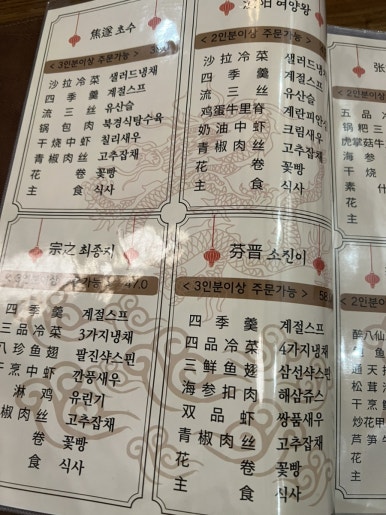 焦遂 초수
< 3인분이상 주문가능 >
沙拉冷菜 샐러드냉채
四季羹 계절스프
流三丝 유산슬
锅包肉 북경식탕수육
干烧中虾 칠리새우
青椒肉丝 고추잡채
花卷 꽃빵
主食 식사
여양왕
< 2인분이상 주문가능 >
沙拉冷菜 샐러드냉채
四季羹 계절스프
流三丝 유산슬
鸡蛋牛里脊 계란피안심
奶油中虾 크림새우
青椒肉丝 고추잡채
花卷 꽃빵
主食 식사
宗之 최종지
47.0
四季羹 계절스프
三品冷菜 3가지냉채
八珍鱼翅 팔진샥스핀
干烹中虾 깐풍새우
淋鸡 유린기
椒肉丝 고추잡채
卷 꽃빵
食 식사
芬晋 소진이
< 3인분이상 주문가능 >
四季羹 계절스프
四品冷菜 4가지냉채
三鲜鱼翅 삼선샥스핀
海参扣肉 해삼쥬스
双品虾 쌍품새우
青椒肉丝 고추잡채
花卷 꽃빵
主食 식사
张
< 2인분이
五品冷
锅粑三
虎掌菇牛
海参
干烧
素什
花
主
< 2인분
醉八仙
四鱼
通天扣
松茸
干烹
炒花甲
芦笋牛
花
主